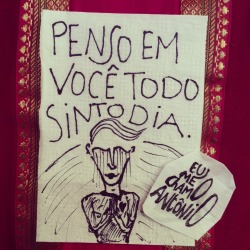 PENSO EM
VOCÊ TODO
SINTO DIA.
EU
ME
CHAMO
ANTÔNIO